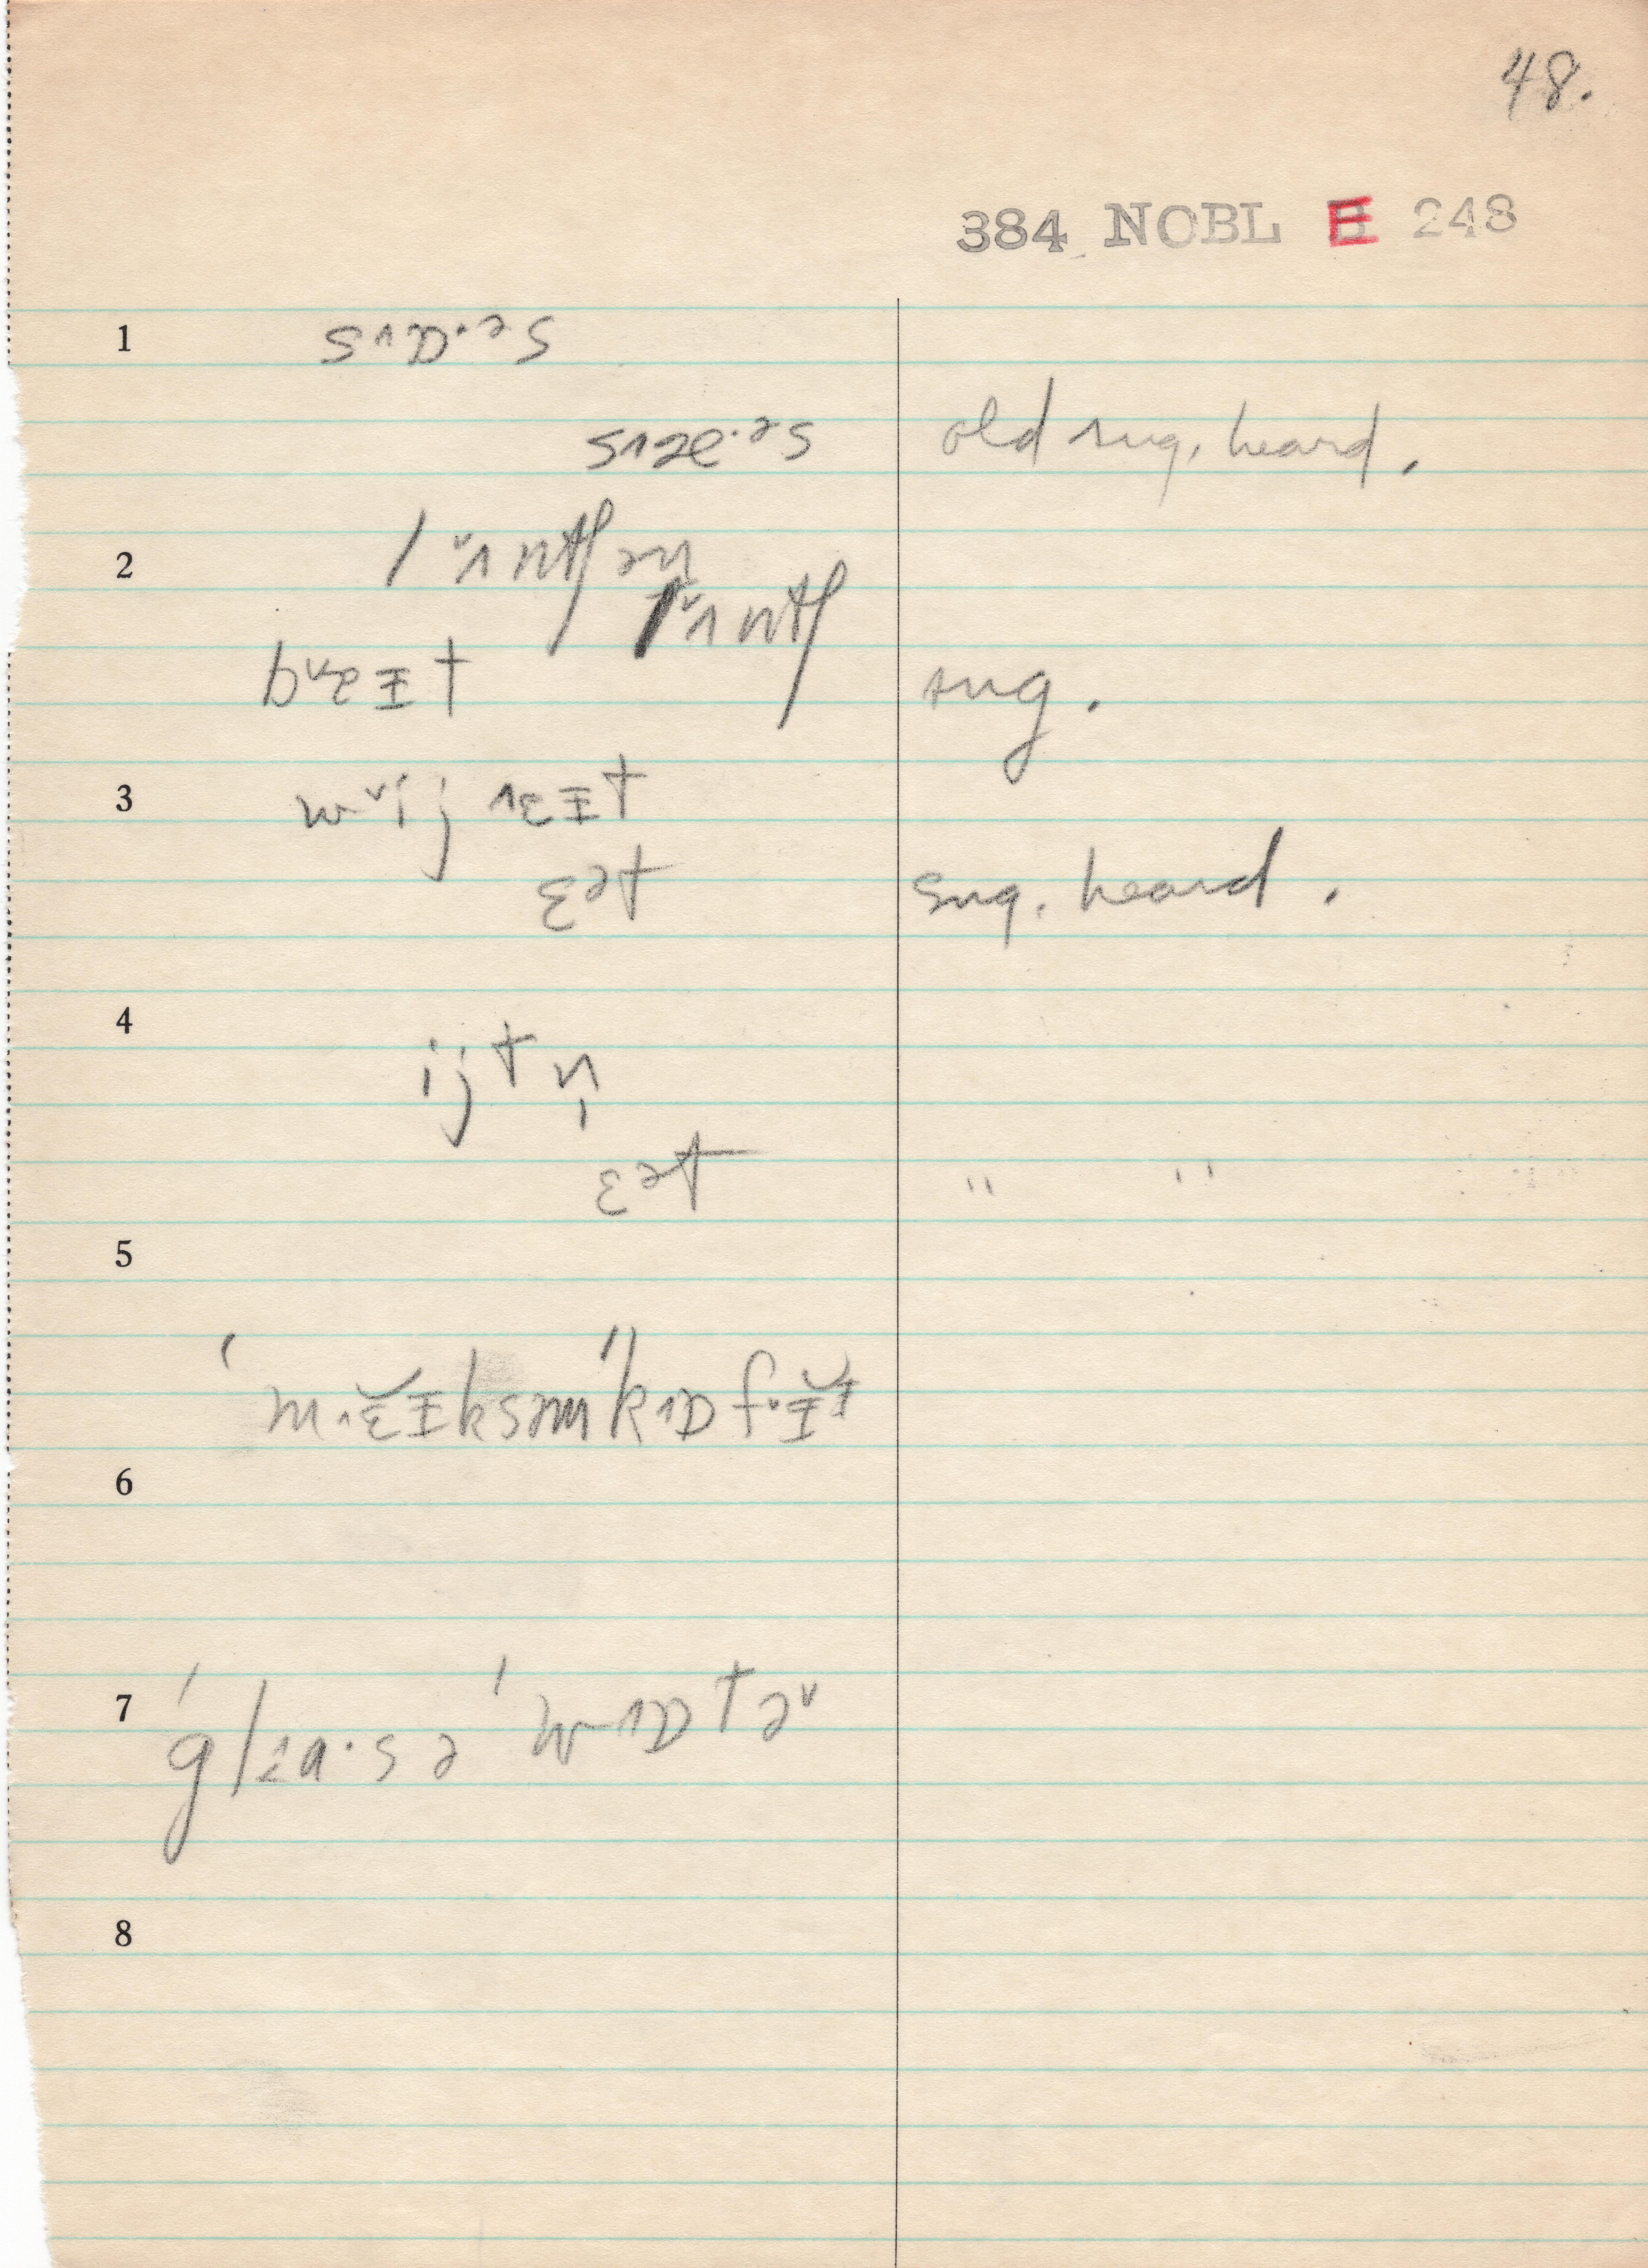 48.
384 NOBL E 248
1 s˄ɒ·ᵊs
s˄æ·ᵊs old sug. heard.
2 l˅ʌntʃən
l˅ʌntʃ
b˅eɪt sug.
3 w˅ij ˄ɛɪt
ɛᵊt sug. heard.
4 ijtn̩
ɛᵊt " "
5
ˈm˄ɛ̆ɪksəmˈk˄ɒf
6
7 ˈglɜa·səˈw˄ɒtə˅
8